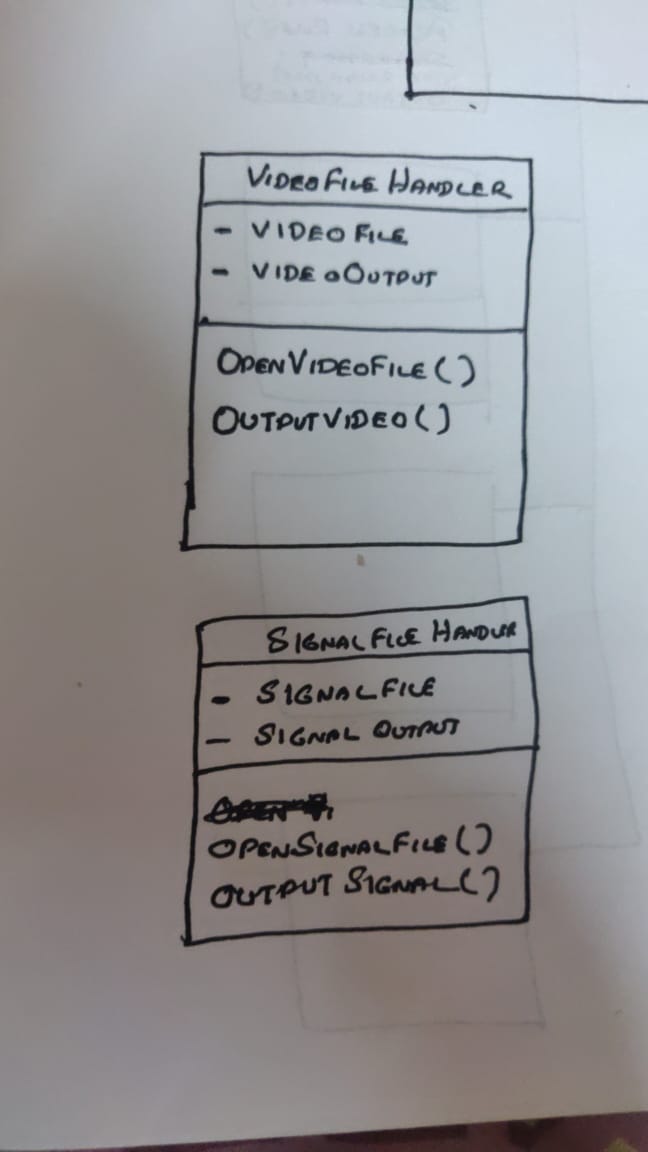 VIDEOFILE HANDLER
- VIDEO FILE
- VIDEOOUTPUT
OPENVIDEOFILE()
OUTPUTVIDEO()
SIGNALFILE HANDLER
- SIGNALFILE
- SIGNAL OUTPUT
OPENSIGNALFILE()
OUTPUT SIGNAL()